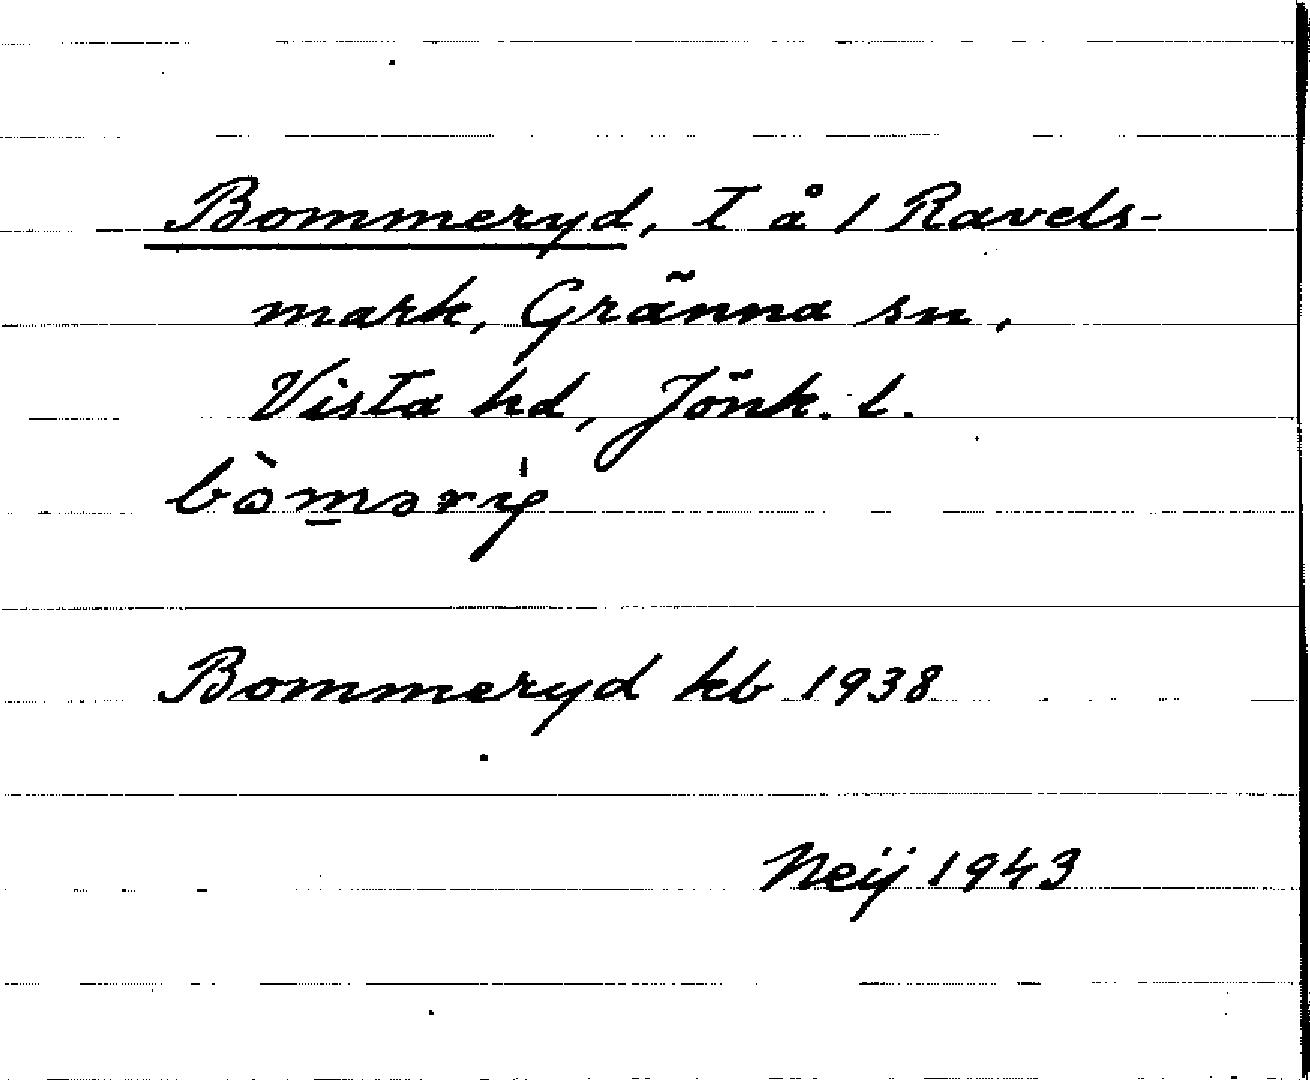 Bommeryd, t å 1 Ravels-
mark, Gränna sn,
Vista hd, Jönk. l.
Bommeryd kb 1938
Neij 1943